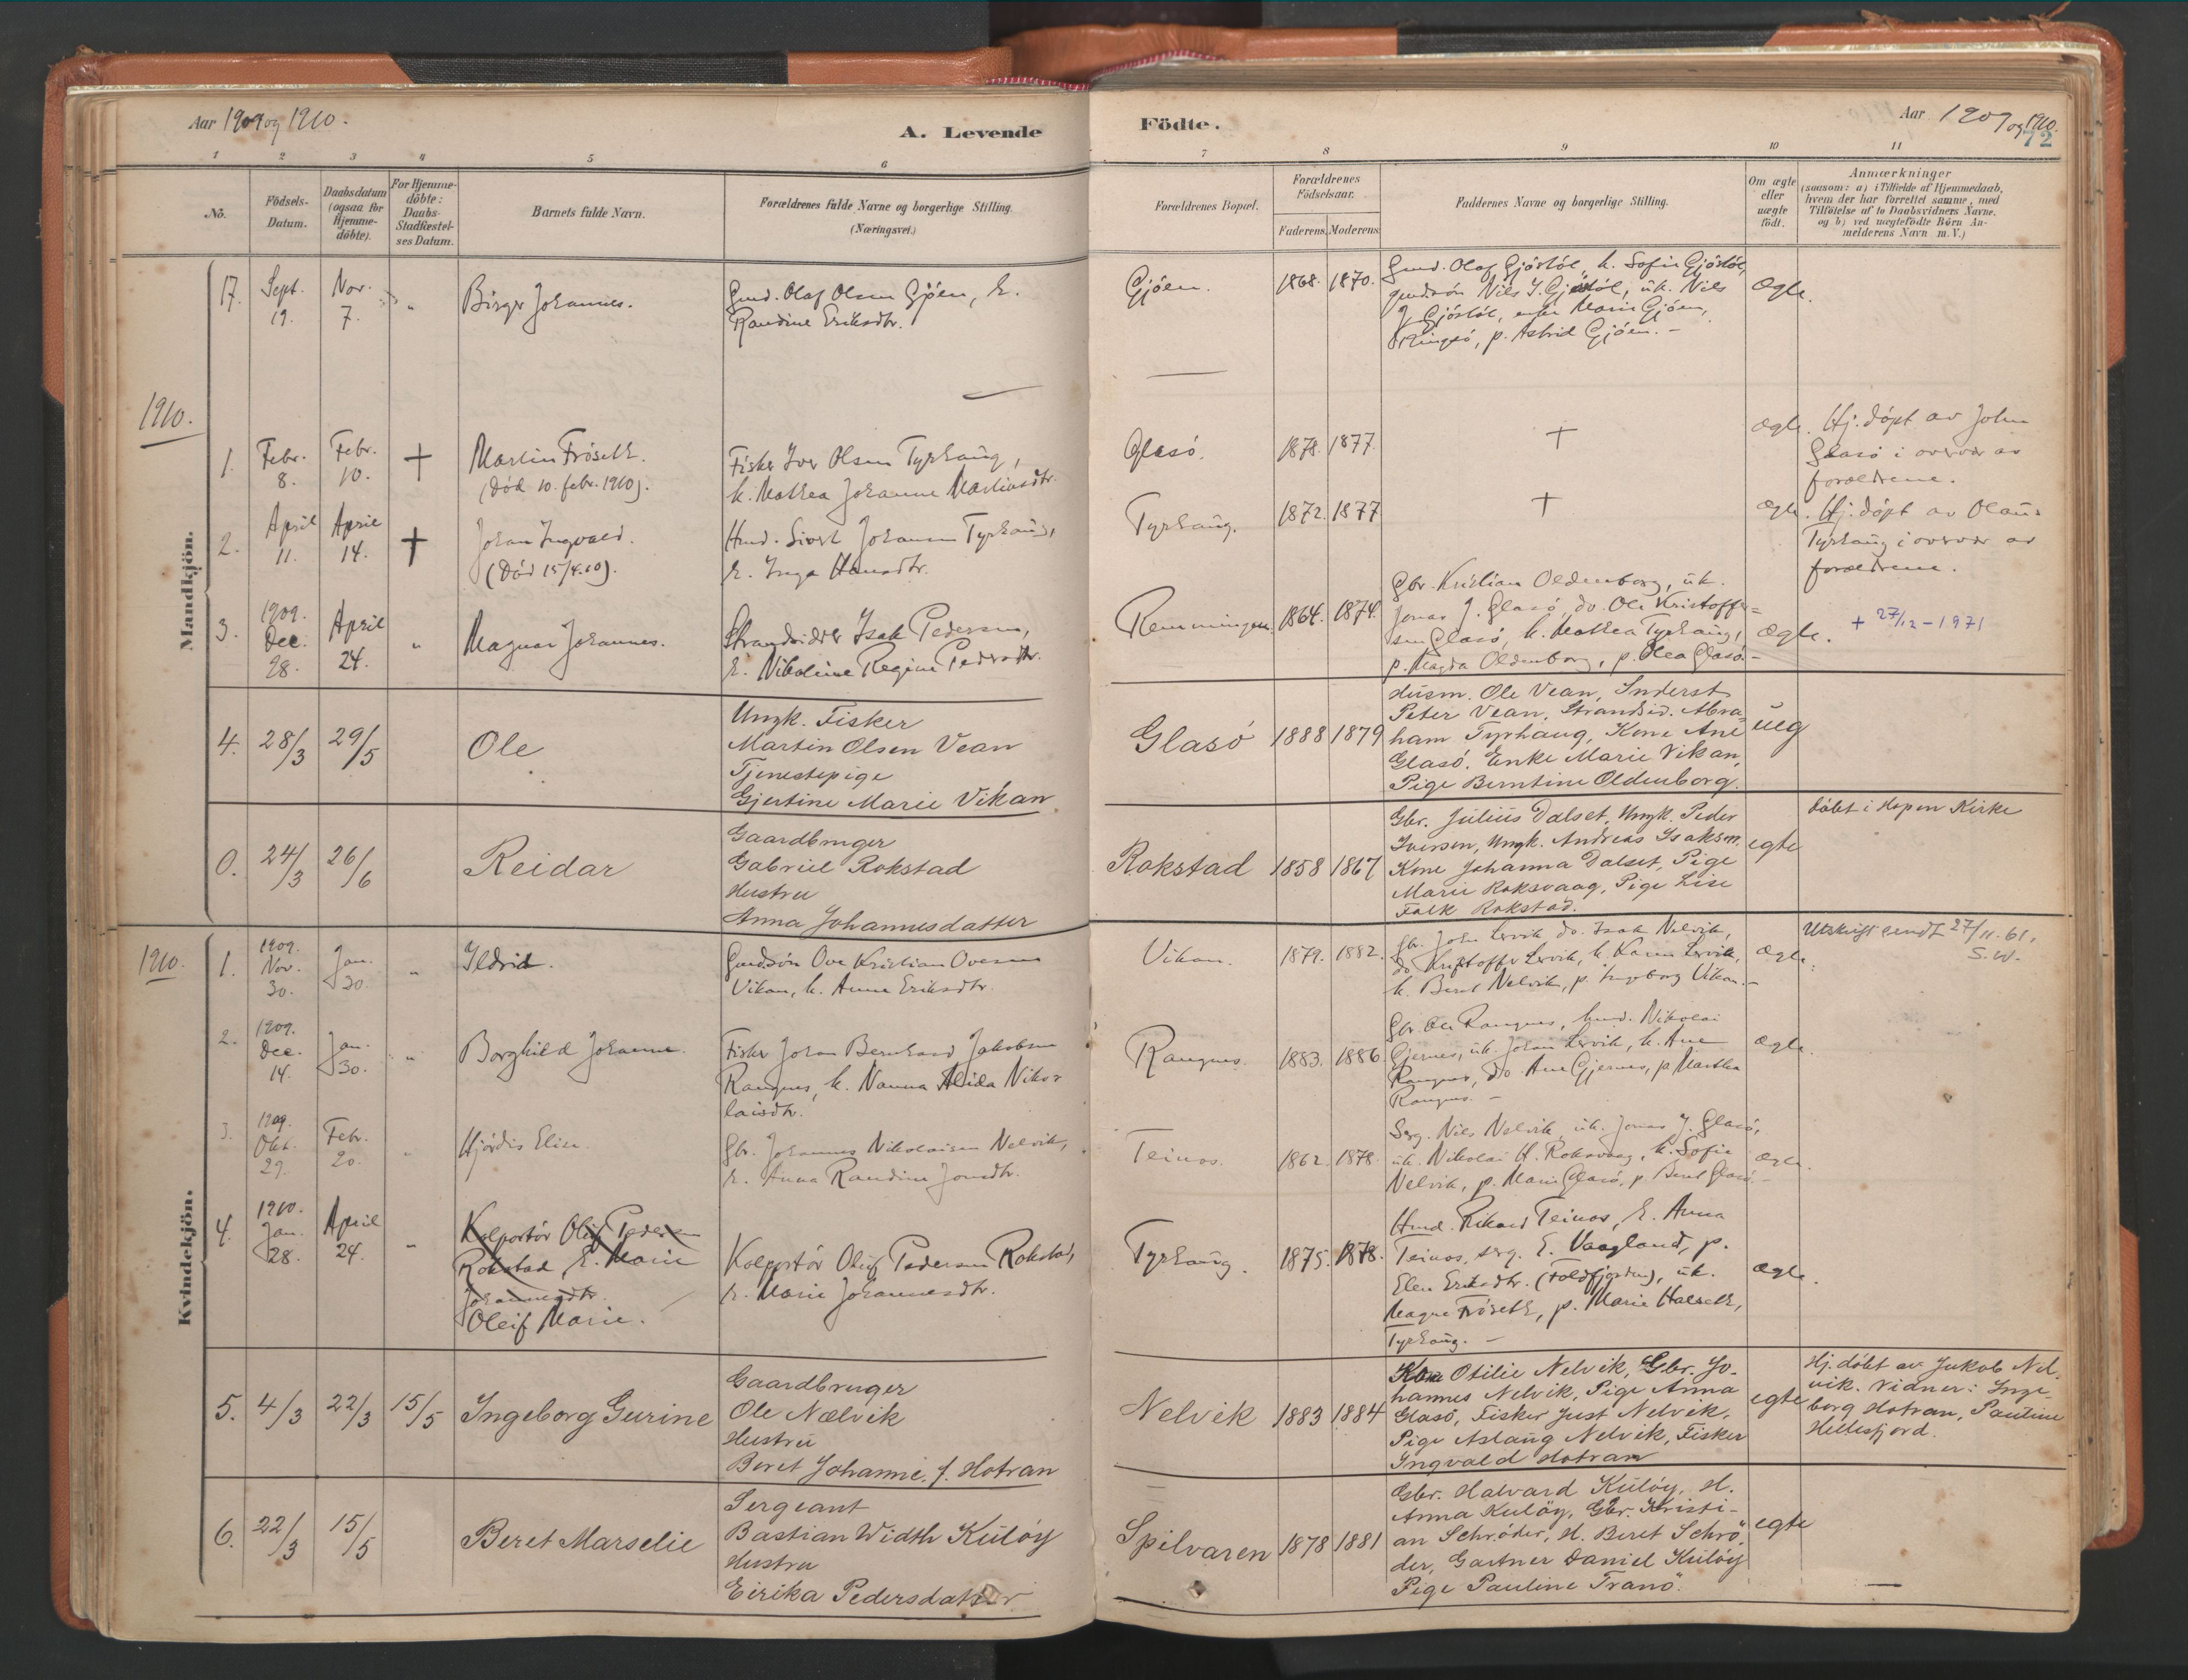 Aar 1909 og 1910.
A. Levende
Födte.
Aar 1909 og 1910.
72
1 2 3 4 5 6 7 8 9 10 11
No.
Födsels-
Datum.
Daabsdatum
(ogsaa for
Hjemme-
döbte).
For Hjemme-
döbte:
Daabs-
Stadfestel-
ses Datum.
Barnets fulde Navn.
Forældrenes fulde Navne og borgerlige Stilling.
(Næringsvei.)
Forældrenes Bopæl.
Forældrenes
Födselsaar.
Faderens. Moderens.
Faddernes Navne og borgerlige Stilling.
Om ægte
eller
uægte
födt.
Anmærkninger
(saasom: a) i Tilfælde af Hjemmedaab,
hvem der har forrettet samme, med
Tilföielse af to Daabsvidners Navne,
og b) ved uægtefödte Börn An-
melderens Navn m. V.)
Mandkjön.
17. Sept. 19. Nov. 7. „ Birger Johannes.
Gmd. Olaf Olsen Gjöen, h.
Randine Eriksdtr.
Gjöen. 1868. 1870.
Gmd. Olaf Gjöstöl, h. Sofie Gjöstöl,
gmdsön Nils J. Gjöstöl, uk. Nils
J. Gjöstöl, enke Marie Gjöen,
Ringsö, p. Astrid Gjöen. –
Ægte.
1910.
1. Febr. 8. Febr. 10. +
Martin Fröseth.
(död 10. febr. 1910).
Fisker Iver Olsen Tyrhaug,
h. Mathea Johanne Martinsdtr.
Glasö. 1878. 1877. +
ægte.
Hj. döpt av John
Glasö i overvær av
forældrene.
2. April 11. April 14. +
Johan Ingvald.
(Död 15/4.10).
Hmd. Sivert Johansen Tyrhaug,
h. Inga Hansdtr.
Tyrhaug. 1872. 1877 +
ægte.
Hj. döpt av Olaus
Tyrhaug i overvær av
forældrene.
3. 1909. Dec. 28. April 24. „ Magnar Johannes.
Strandsidder Isak Pedersen,
h. Nikoline Regine Pedersdtr.
Remmingen. 1864. 1874.
Gbr. Kristian Oldenborg, uk.
Jonas J. Glasö, do. Ole Kristoffer=
sen Glasö, h. Mathea Tyrhaug,
p. Magda Oldenborg, p. Olea Glasö. –
Ægte.
+ 27/12 - 1971
4. 28/3 29/5 Ole
Ungk. Fisker
Martin Olsen Vean
Tjenestepige
Gjertine Marie Vikan
Glasö 1888 1879
Husm. Ole Vean, Inderst
Peter Vean, Strandsid. Abra=
ham Tyrhaug, Kone Ane
Glasö, Enke Marie Vikan,
Pige Berntine Oldenborg.
ueg
0. 24/3 26/6 Reidar
Gaardbruger
Gabriel Rokstad
Hustru
Anna Johannesdatter
Rokstad 1858 1867
Gbr. Julius Dalset, Ungk. Peder
Iversen, Ungk. Andreas Isaksen,
Kone Johanna Dalset, Pige
Marie Roksvaag, Pige Lise
Falk Rokstad.
egte
döbt i Hopen Kirke
Kvindekjön.
1910.
1. 1909. Nov. 30. Jan. 30. „ Ildrid.
Gmdsön Ove Kristian Ovesen
Vikan, h. Anne Eriksdtr.
Vikan. 1879. 1882.
Gbr. John Lervik, do. Isak Nelvik,
do Kristoffer Lervik, h. Karen Lervik,
h. Beret Nelvik, p. Ingeborg Vikan. –
Ægte.
Utskrift sendt 27/11.61.
S.W.
2. 1909. Dec. 14. Jan. 30. „ Borghild Johanne.
Fisker Johan Bernhard Jakobsen
Rangnes, h. Nanna Alida Niko=
laisdtr.
Rangnes. 1883. 1886.
Gbr. Ole Rangnes, hmd. Nikolai
Gjernes, uk. Johan Lervik, h. Ane
Rangnes, do Ane Gjernes, p. Martha
Rangnes. –
Ægte.
3. 1909. Okt. 29. Febr. 20. „ Hjördis Elise.
Gbr. Johannes Nikolaisen Nelvik,
h. Anna Randine Jonsdtr.
Teinos. 1862. 1878.
Serg. Nils Nelvik, uk. Jonas J. Glasö,
uk. Nikolai H. Roksvaag, h. Sofie
Nelvik, p. Marie Glasö, p. Beret Glasö. –
ægte.
4. 1910. Jan. 28. April 24. „
Kolportör Oluf Pedersen
Rokstad, h. Marie
Johannesdtr.
Oleif Marie.
Kolportör Oluf Pedersen Rokstad,
h. Marie Johannesdtr.
Tyrhaug. 1875. 1878.
Hmd. Rikard Teinos, h. Anna
Teinos, serg. E. Vaagland, p.
Elen Eriksdtr. (Foldfjorden), uk.
Magne Fröseth, p. Marie Halseth,
Tyrhaug. –
Ægte.
5. 4/3 22/3 15/5 Ingeborg Gurine
Gaardbruger
Ole Nælvik
Hustru
Beret Johanne, f. Hotran
Nelvik 1883 1884
Kone Otilie Nelvik, Gbr. Jo-
hannes Nelvik, Pige Anna
Glasö, Fisker Just Nelvik,
Pige Aslaug Nelvik, Fisker
Ingvald Hotran
egte
Hj. döbt av Jakob Nel-
vik. Vidner: Inge-
borg Hotran, Pauline
Hellesfjord.
6. 22/3 15/5 Beret Marselie
Sergeant
Bastian Width Kulöy
Hustru
Eirika Pedersdatter
Spilvaren 1878 1881
Gbr. Halvard Kulöy, H.
Anna Kulöy, Gbr. Kristi-
an Schröder, H. Beret Schrö-
der, Gartner Daniel Kulöy
Pige Pauline Tranö.
egte